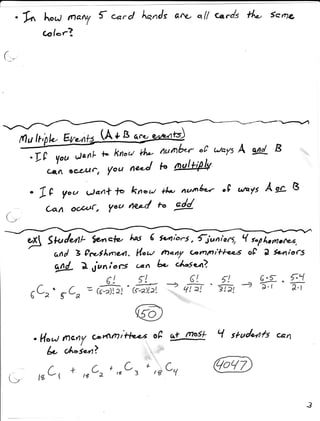 • In how many 5 card hands are all cards the same
color?
Multiple Events (A + B are events)
• If you want to know the number of ways A and B
can occur, you need to multiply
• If you want to know the number of ways A or B
can occur, you need to add
ex) Student Senate has 6 seniors, 5 juniors, 4 sophomores,
and 3 freshmen. How many committees of 2 seniors
and 2 juniors can be chosen?
₆C₂ · ₅C₂ = 6!/(6-2)!2! · 5!/(5-2)!2! → 6!/4!2! · 5!/3!2! → 6·5/2·1 · 5·4/2·1
150
• How many committees of at most 4 students can
be chosen?
₁₈C₁ + ₁₈C₂ + ₁₈C₃ + ₁₈C₄ 4047
3